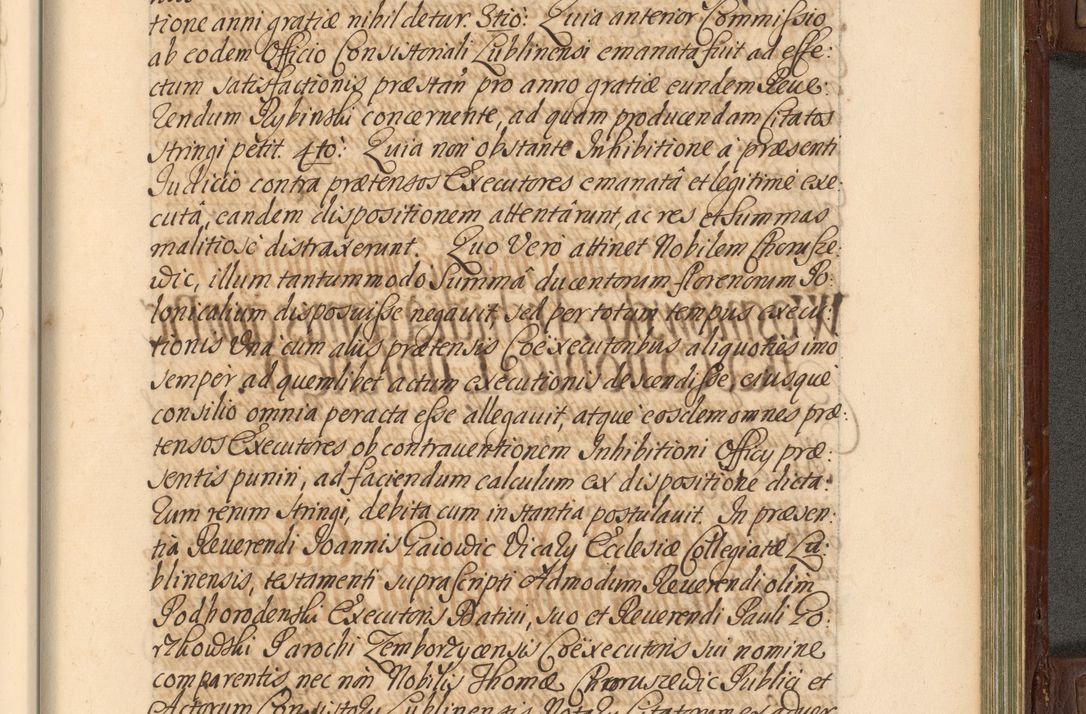 tione anni gratiæ nihil detur. 3tiò: Quia anterior Commissio
ab eodem Officio Consistoriali Lublinensi emanata fuit ad effe:
ctum satisfactionis præstan pro anno gratiæ eundem Reue:
rendum Rybinski concernente, ad quam producendam Citatos
stringi petit. 4tò: Quia non obstante Inhibitione à præsenti
Iudicio contra prætensos Executores emanatâ et legitimè exe:
cutâ, eandem dispositionem attentârunt, ac res et summas
malitiosè distraxerunt. Quo Verò attinet Nobilem Chorusze:
wic, illum tantummodo Summâ ducentorum florenorum Po:
lonicalium disposuisse negauit, sed per totum tempus execu:
tionis Una cum alijs prætensis Coëxecutoribus aliquoties imò
semper ad quemlibet actum executionis descendisse, eiusque
consilio omnia peracta esse allegauit, atque eosdem omnes præ:
tensos Executores ob contrauentionem Inhibitioni Officij præ:
sentis puniri, ad faciendum calculum ex dispositione dicta:
rum rerum stringi, debita cum instantia postulauit. In præsen:
tia Reuerendi Joannis Gaiowic Vicarij Ecclesiæ Collegiatæ Lu:
blinensis, testamenti suprascripti Admodum Reuerendi olim
Podhorodenski Executoris Ratini, suo et Reuerendi Pauli Go:
rzkowski Parochi Zemborzycensis Coëxecutoris sui nomine
comparentis, nec non Nobilis Thomæ Choruszewic Publici et
Actorum Consistorij Lublinensis Notarij Citatorum ex aduer